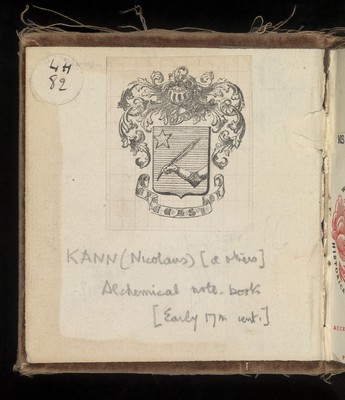 LH
82
KANN (Nicolaus) [& others]
Alchemical note-book
[Early 17th cent.]